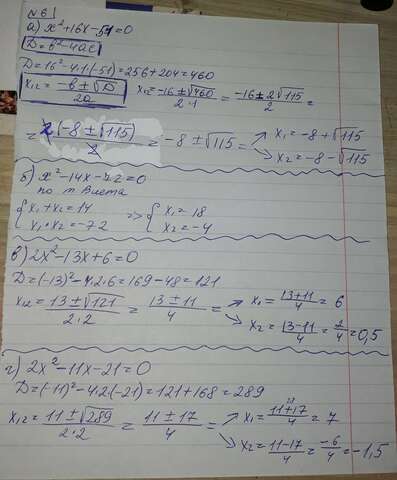 № 61
а) x²+16x-51=0
D=b²-4ac
D=16²-4·1·(-51)=256+204=460
x₁,₂= (-b±√D)/2a x₁,₂= (-16±√460)/(2·1) = (-16±2√115)/2 =
= 2(-8±√115)/2 = -8±√115 = x₁=-8+√115
x₂=-8-√115
б) x²-14x-72=0
по т. Виета
{x₁+x₂=14 => {x₁=18
x₁·x₂=-72 x₂=-4
в) 2x²-13x+6=0
D=(-13)²-4·2·6=169-48=121
x₁,₂= (13±√121)/(2·2) = (13±11)/4 = x₁= (13+11)/4 = 6
x₂= (13-11)/4 = 2/4 = 0,5
г) 2x²-11x-21=0
D=(-11)²-4·2·(-21)=121+168=289
x₁,₂= (11±√289)/(2·2) = (11±17)/4 = x₁= (11+17)/4 = 7
x₂= (11-17)/4 = -6/4 = -1,5